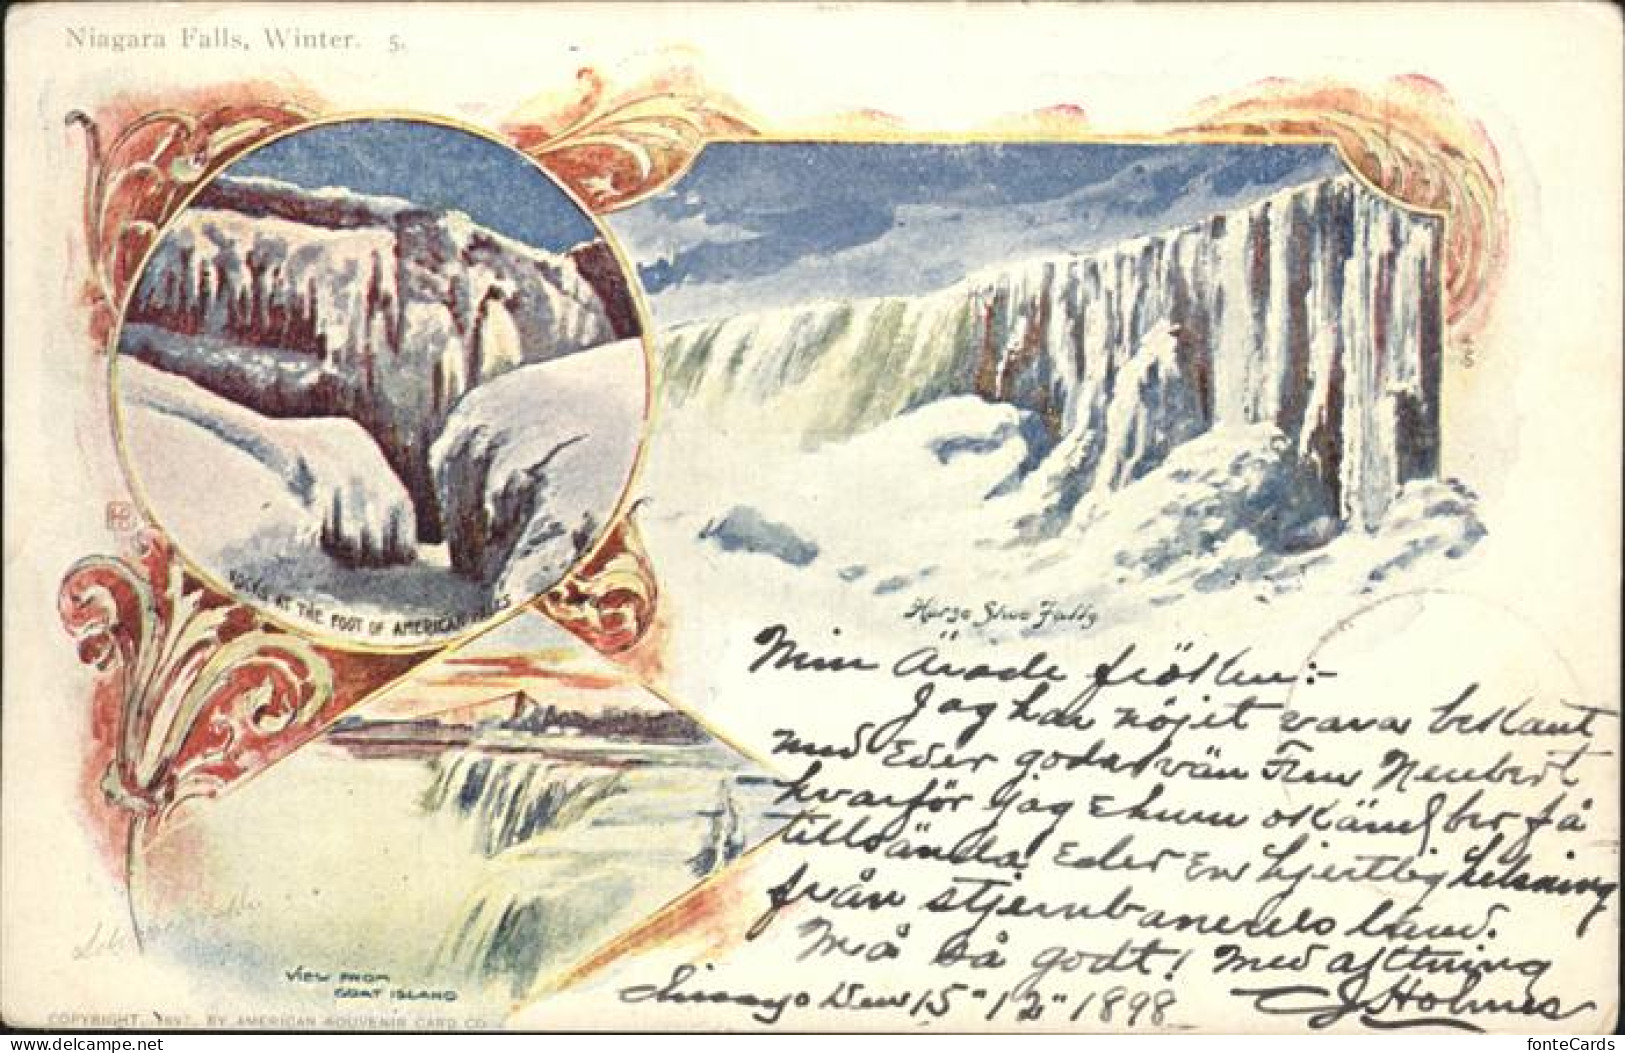 Niagara Falls, Winter. 5.
ROCKS AT THE FOOT OF AMERICAN FALLS
Horse Shoe Falls
Min Ärade fröken:-
Jag har nöjet vara bekant
med Eder goda vän Fru Neubert
hvarför jag ehuru okänd ber få
tillsända Eder en hjertlig helsning
från stjernbanerets land.
Må så godt! Med aktning
Chicago Den 15 "12" 1898 J. Holmes
VIEW FROM
GOAT ISLAND
COPYRIGHT, 1897, BY AMERICAN SOUVENIR CARD CO.
delcampe.net
fonteCards